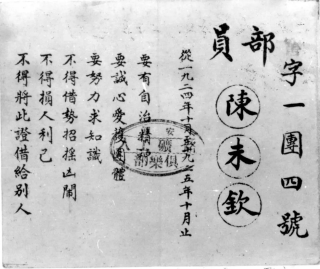 字一團四號
部員
陳未欽
從一九二四年十月至一九二五年十月止
要有自治精神
要誠心愛護團體
要努力求知識
不得借勢招搖凶鬧
不得損人利己
不得將此證借給別人
安
俱樂部